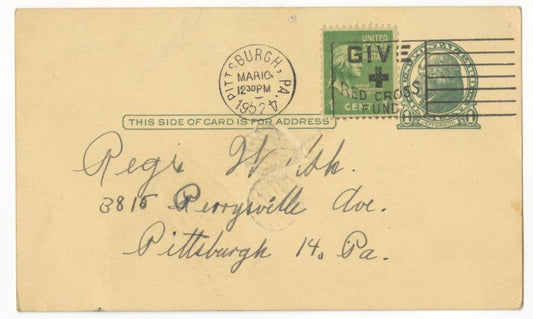 PITTSBURGH, PA. 4
MAR 10
12 30 PM
1952
UNITED
POSTAGE
CENT
GIVE
RED CROSS
FUND
THIS SIDE OF CARD IS FOR ADDRESS
Regis
3815 Perrysville Ave.
Pittsburgh 14. Pa.